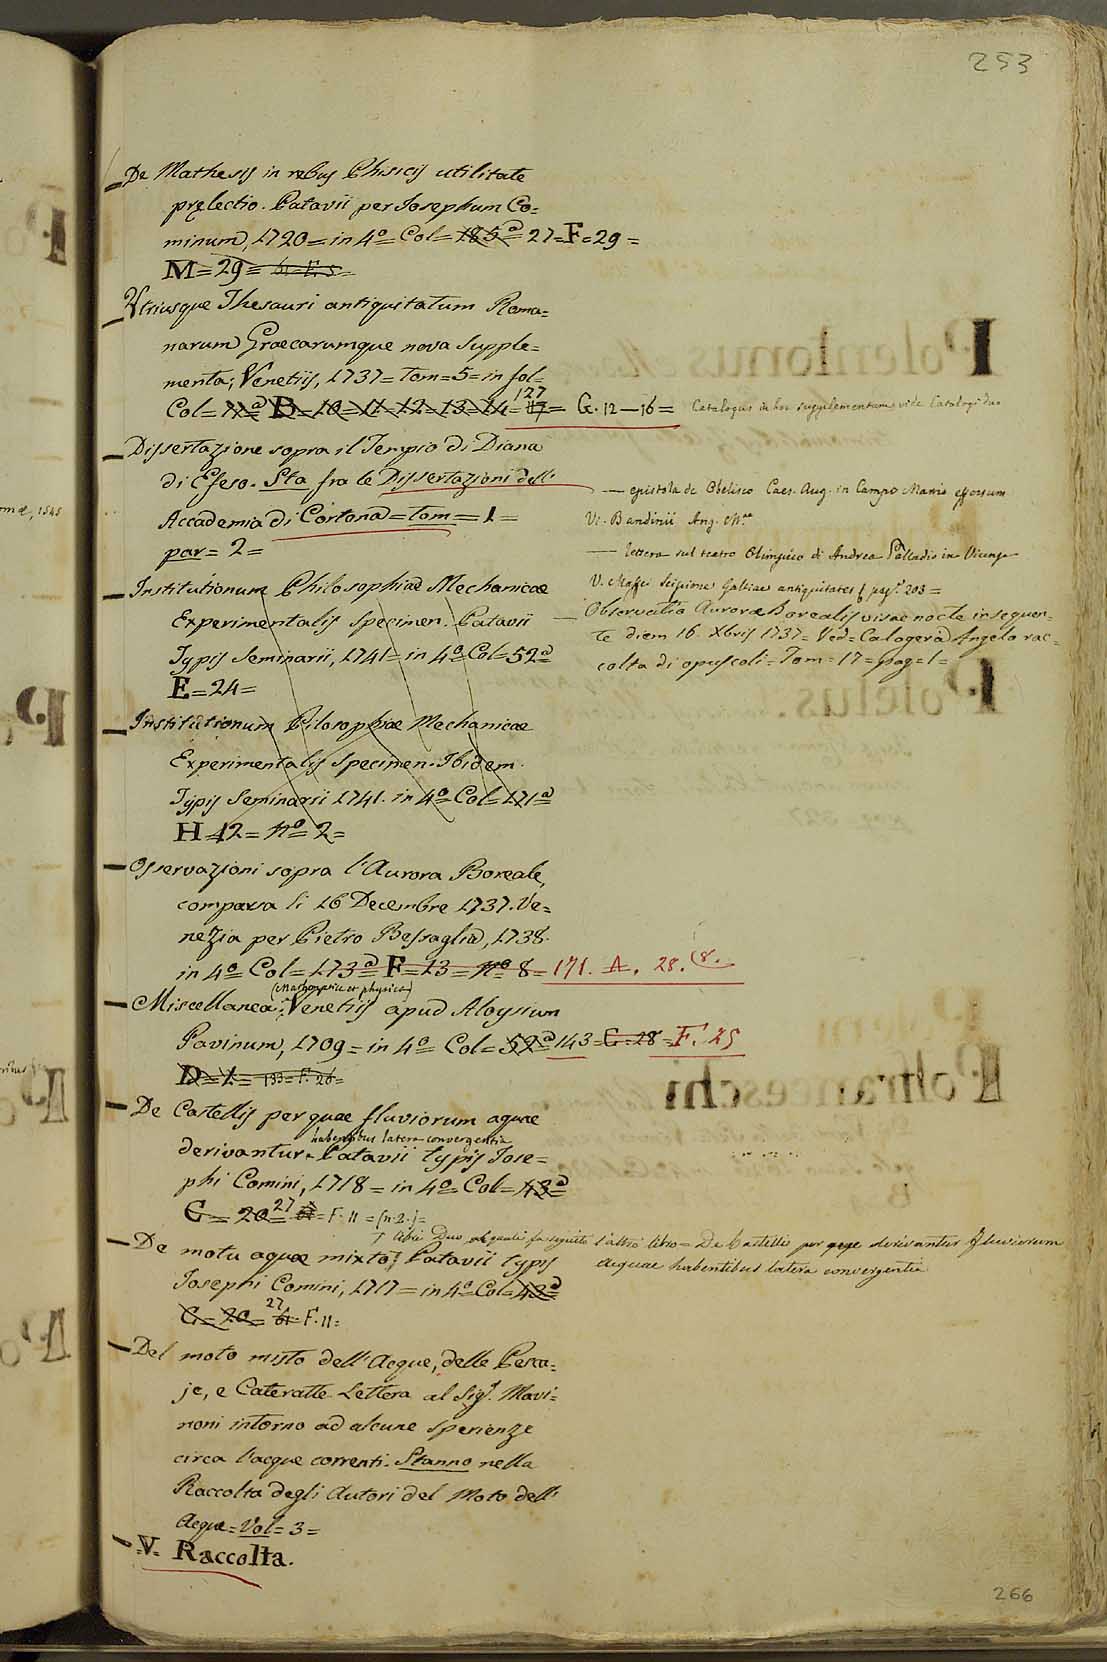 253
De Mathesis in rebus Phisicis utilitate
prelectio. Patavii per Josephum Co=
minum, 1720= in 4º= Col= 185ª= 27=F=29=
M=29= 61=F.5=
Utriusque Thesauri antiquitatum Roma=
narum Graecarumque nova Supple=
menta; Venetiis, 1737= Tom=5= in fol=
127
Col= 71ª B=10=11=12=13=14= 17= G.12—16= Catalogus in hoc supplementum vide Catalogi duo
Dissertazione sopra il Tempio di Diana
di Efeso. Sta fra le Dissertazioni dell'
Accademia di Cortona= tom= 1=
par= 2=
— epistola de Obelisco Caes. Aug. in Campo Martio effossum
V. Bandinii Ang. Mª
— lettera sul teatro Olimpico di Andrea Palladio in Vicenza
V. Maffei Scipione Galliae antiquitates pag. 203=
— Observatio Aurorae Borealis visae nocte insequen=
te diem 16. Xbris 1737= Ved= Calogerà Angelo rac=
colta di opuscoli= Tom= 17= pag=1=
Institutionum Philosophiae Mechanicae
Experimentalis specimen. Patavii
Typis Seminarii, 1741= in 4º= Col=52ª=
E=24=
Institutionum Pilosophiae Mechanicae
Experimentalis specimen. Ibidem
Typis Seminarii 1741. in 4º= Col=171ª
H 12= nº= 2=
Osservazioni sopra l'Aurora Boreale,
comparsa li 16 Decembre 1737. Ve=
nezia per Pietro Bassaglia, 1738.
in 4º= Col= 173ª= F=13= nº 8= 171. A. 28. (8.
(Mathematica et physica)
Miscellanea; Venetiis apud Aloysium
Pavinum, 1709= in 4º= Col= 52ª= 143= G=28= F. 25
D=1= 133=F.26=
De Castellis per quae fluviorum aquae
habentibus latera convergentia
derivantur. Patavii typis Jose=
phi Comini, 1718= in 4º= Col= 43ª=
G= 20= 27 61= F.11= (n.2.)=
† libri Duo, ai quali fa seguito l'altro libro= De Castellis per quae derivantur fluviorum
aquae habentibus latera convergentia
De motu aquae mixto; Patavii typis
Josephi Comini, 1717= in 4º= Col=43ª=
G=20= 27 61= F.11=
Del moto misto dell'Acque, delle Pesca=
je, e Cateratte Lettera al Sigr. Mari=
noni intorno ad alcune sperienze
circa l'acque correnti. Stanno nella
Raccolta degli Autori del Moto dell'
Acque= Vol= 3=
=V= Raccolta.
266